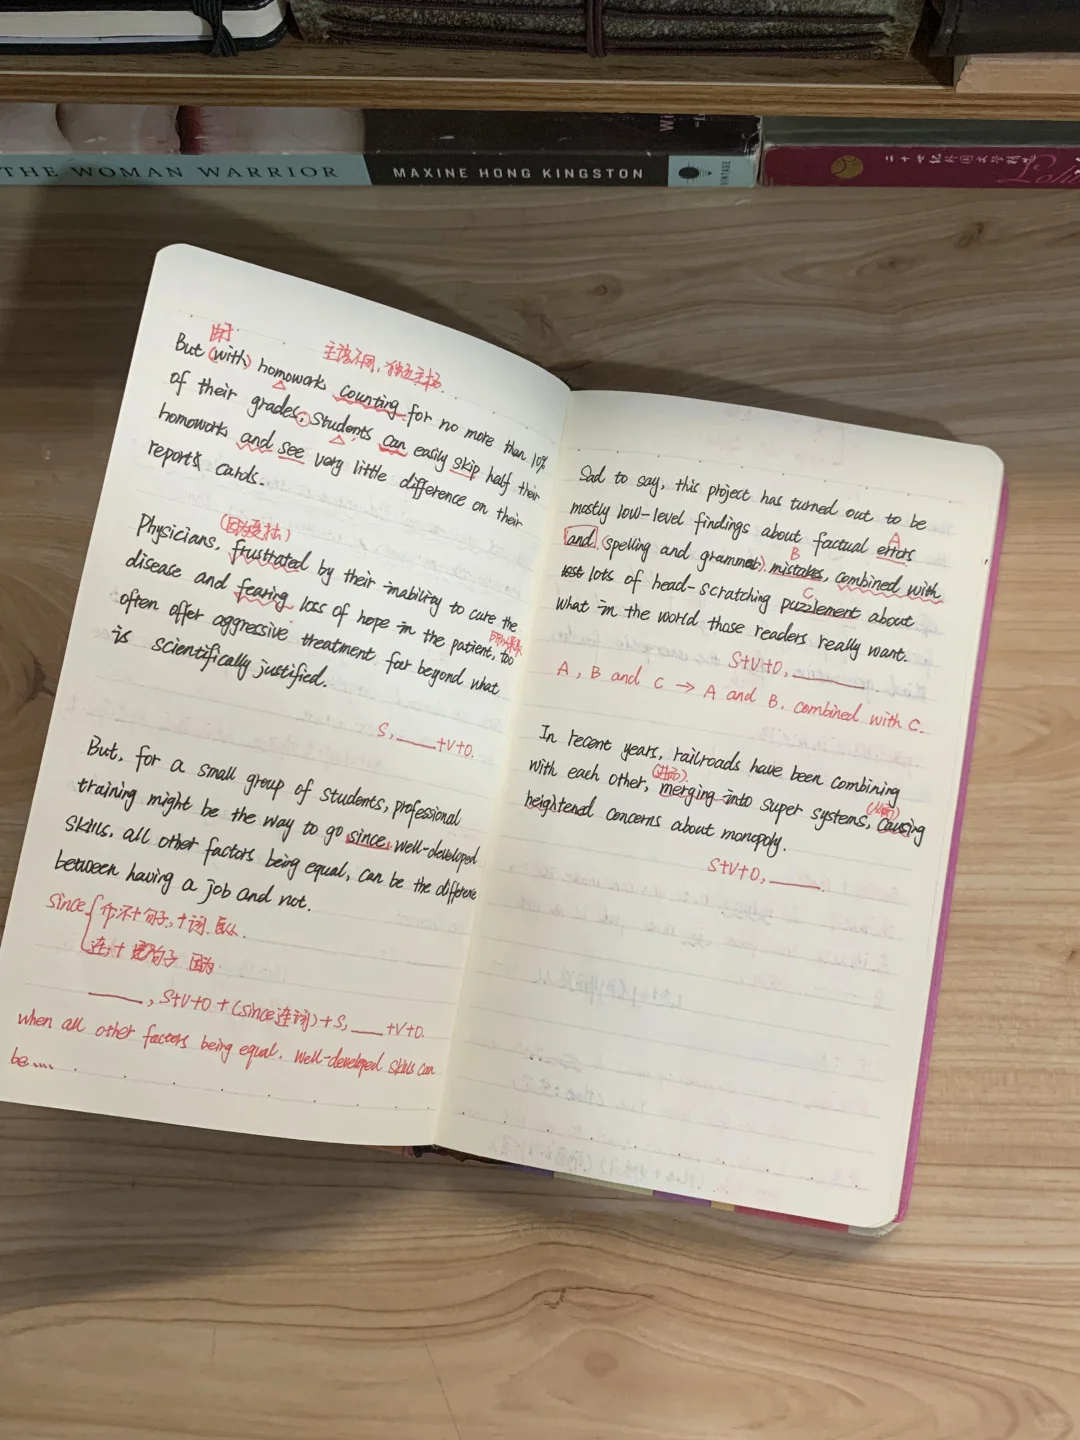 THE WOMAN WARRIOR
MAXINE HONG KINGSTON
VINTAGE
二十世纪外国文学精选
由于
主语不同，独立主格.
But (with) homework counting for no more than 10%
of their grades, students can easily skip half their
homework and see very little difference on their
reports cards.
(因为受挫)
Physicians, frustrated by their inability to cure the
disease and fearing loss of hope in the patient, too
often offer aggressive treatment far beyond what
is scientifically justified.
S, ____+V+O.
But, for a small group of students, professional
training might be the way to go since, well-developed
skills, all other factors being equal, can be the difference
between having a job and not.
since
介:不+句子,+词. 自从.
连:+句子 因为
____, S+V+O + (since连词)+S, ____+V+O.
when all other factors being equal. well-developed skills can
be....
Sad to say, this project has turned out to be
mostly low-level findings about factual errors
A
and (spelling and grammar) mistakes, combined with
B
lots of head-scratching puzzlement about
C
what in the world those readers really want.
S+V+O, ____.
A, B and C → A and B, combined with C.
In recent years, railroads have been combining
with each other, merging into super systems, causing
heightened concerns about monopoly.
S+V+O, ____.